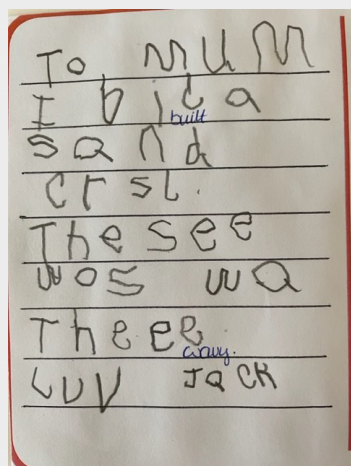 To MUM
I bit a
built
sand
crsl.
The see
wos wa
Theee.
wavy.
Luv JacK